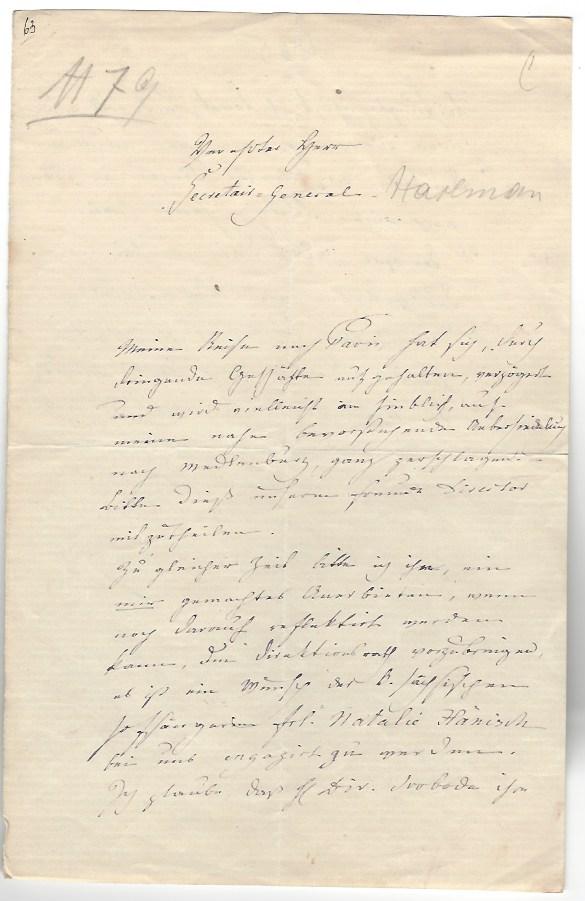 63
H 79
Verehrter Herr
Secretair-General Harlman
Meine Reise nach Paris hat sich, durch
dringende Geschäfte aufgehalten, verzögert
und wird vielleicht im Hinblick, auf
meine nahe bevorstehende Uebersiedelung
nach Mecklenburg, ganz zerschlagen.
bitte dieß unserem Director
mitzutheilen.
Zu gleicher Zeit bitte ich ihn, ein
mir gemachtes Anerbieten, wenn
noch darauf reflektirt werden
kann, dem Direktionsrath vorzubringen,
es ist ein Wunsch der k. sächsischen
Hofsängerin Frl. Natalie Hänisch
bei uns engagirt zu werden.
Ich glaube daß H Dir. Svoboda ihn